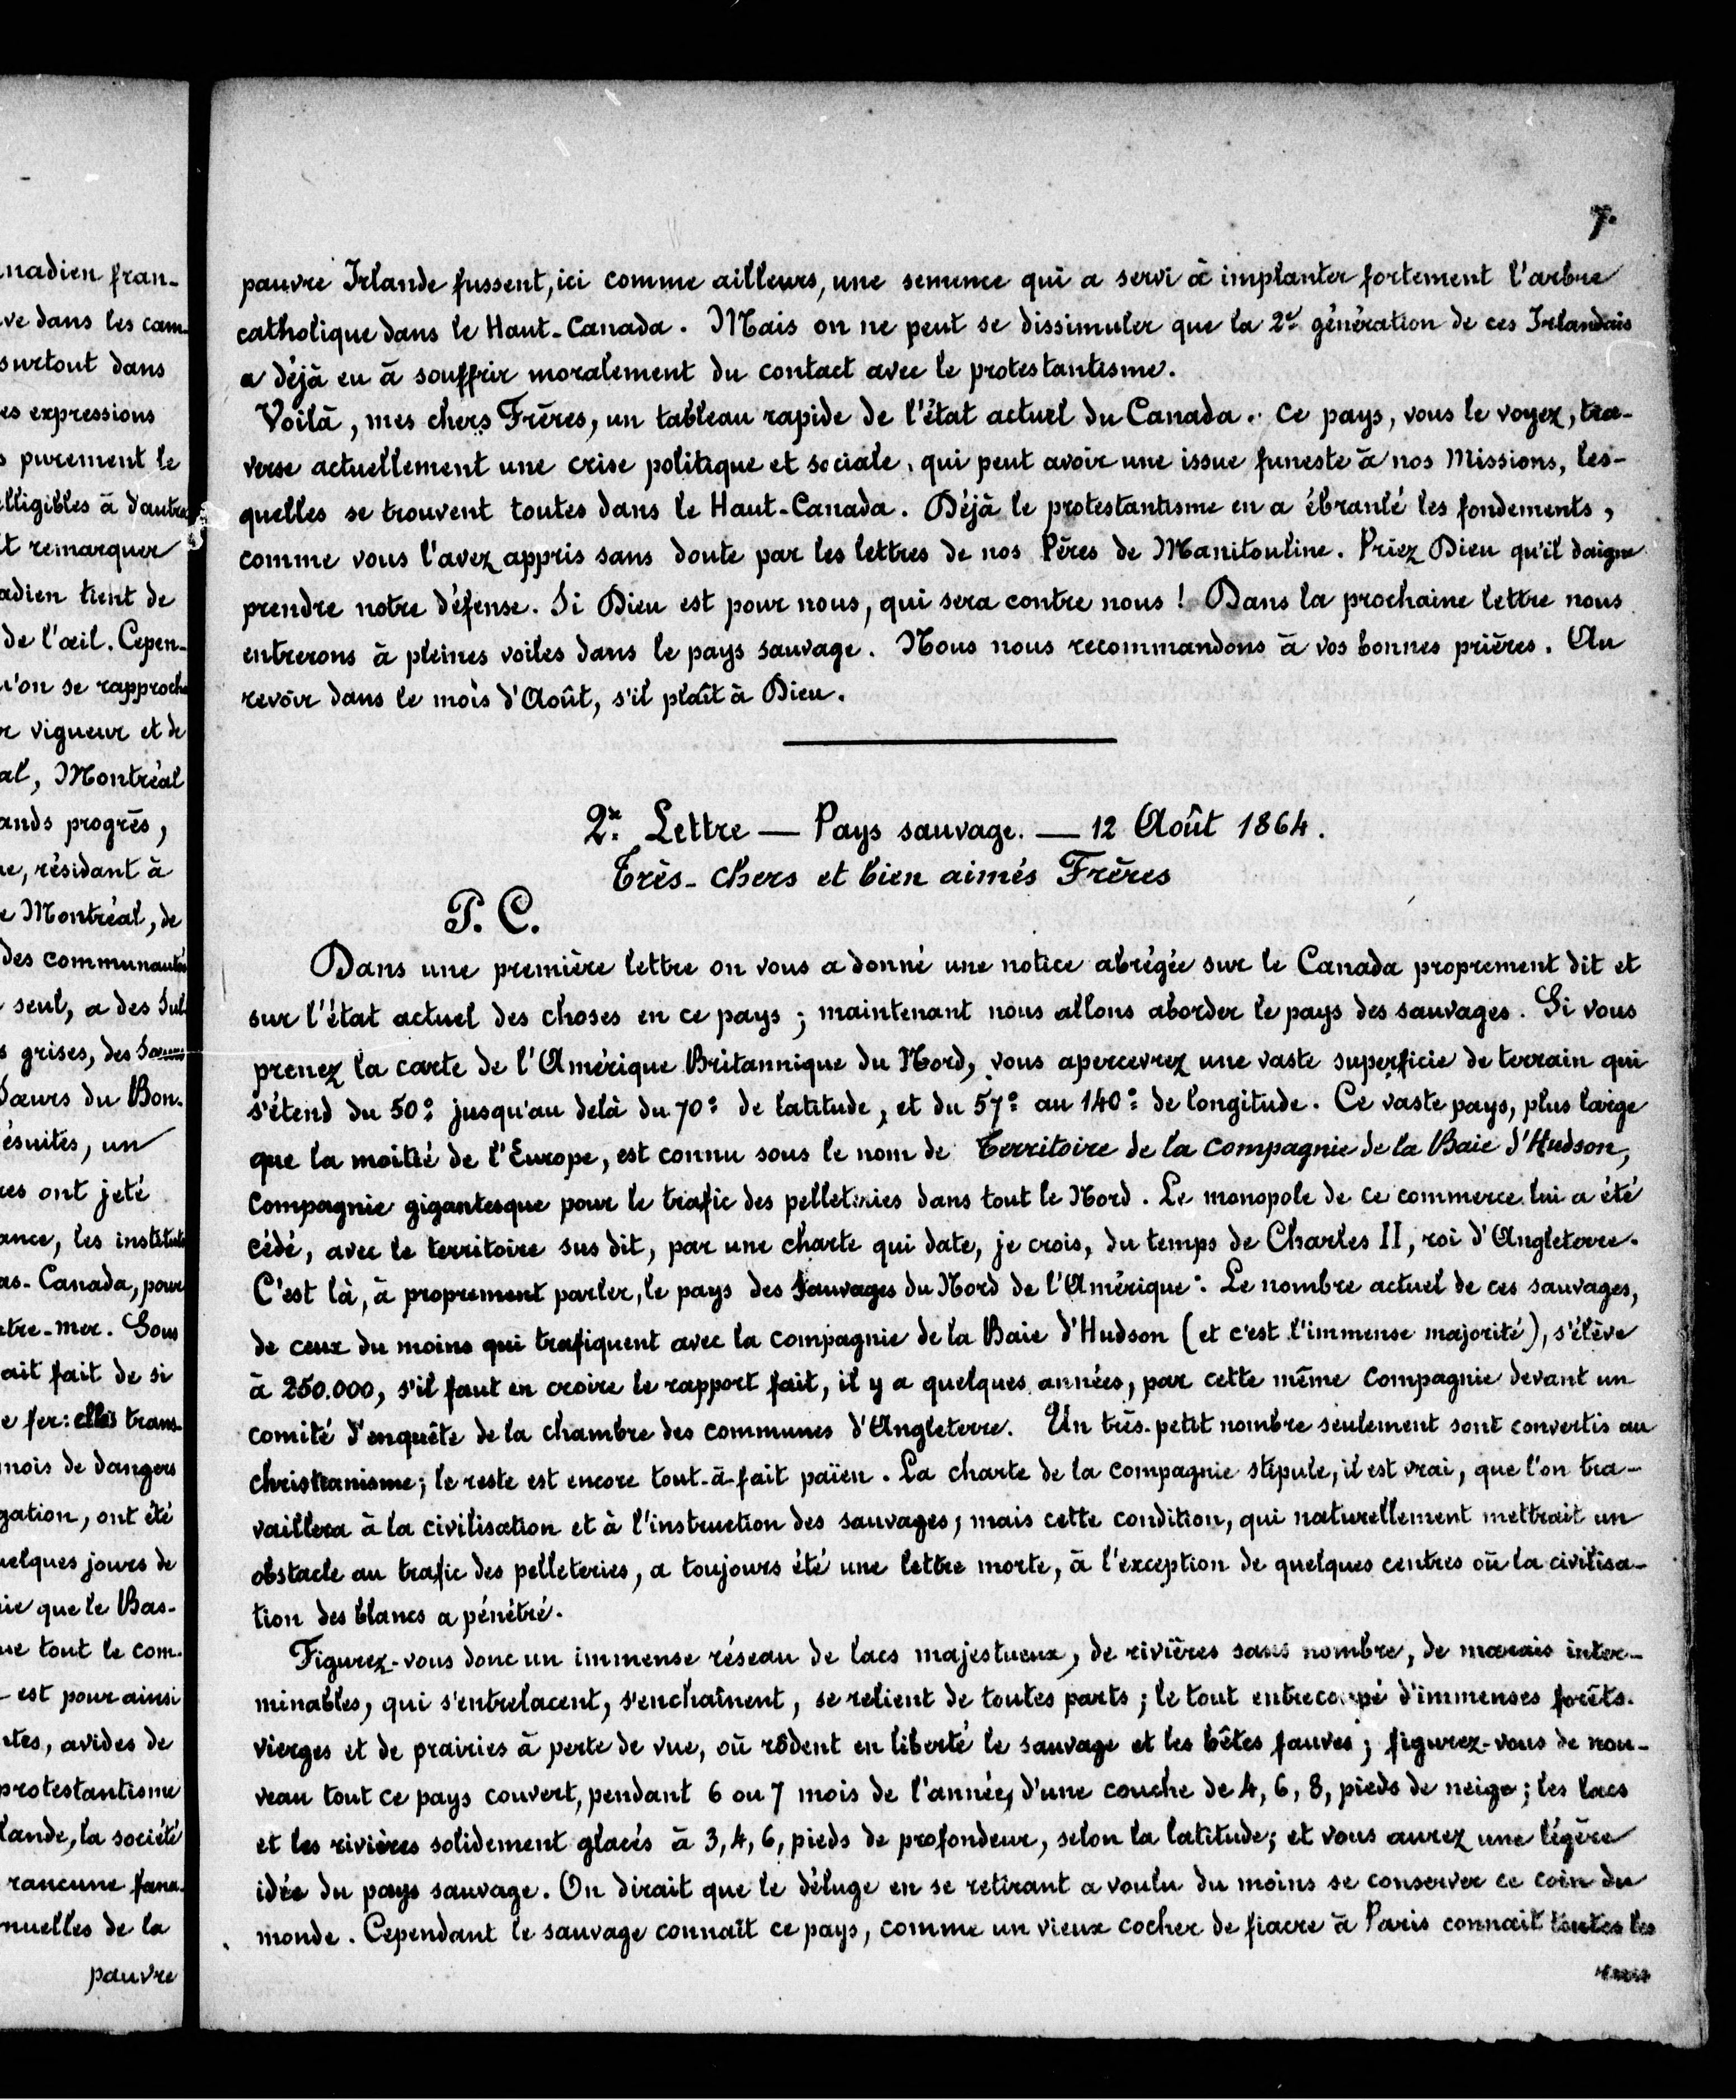 nadien fran-
ve dans les cam-
surtout dans
es expressions
s purement le
elligibles à d'autres
t remarquer
adien tient de
de l'œil. Cepen-
u'on se rapproche
r vigueur et de
al, Montréal
ands progrès,
ue, résidant à
e Montréal, de
des communautés
seul, a des Sul-
s grises, des Sœurs
Sœurs du Bon-
ésuites, un
res ont jeté
ance, les instituts
as-Canada, pour
tre-mer. Sous
ait fait de si
e fer: elles trans-
mois de dangers
gation, ont été
uelques jours de
ie que le Bas-
ue tout le com-
est pour ainsi
tes, avides de
protestantisme
lande, la société
rancune fana-
nuelles de la
pauvre
7.
pauvre Irlande fussent, ici comme ailleurs, une semence qui a servi à implanter fortement l'arbre
catholique dans le Haut-Canada. Mais on ne peut se dissimuler que la 2e génération de ces Irlandais
a déjà eu à souffrir moralement du contact avec le protestantisme.
Voilà, mes chers Frères, un tableau rapide de l'état actuel du Canada. Ce pays, vous le voyez, tra-
verse actuellement une crise politique et sociale, qui peut avoir une issue funeste à nos Missions, les-
quelles se trouvent toutes dans le Haut-Canada. Déjà le protestantisme en a ébranlé les fondements,
comme vous l'avez appris sans doute par les lettres de nos Pères de Manitouline. Priez Dieu qu'il daigne
prendre notre défense. Si Dieu est pour nous, qui sera contre nous! Dans la prochaine lettre nous
entrerons à pleines voiles dans le pays sauvage. Nous nous recommandons à vos bonnes prières. Au
revoir dans le mois d'Août, s'il plaît à Dieu.
2e. Lettre — Pays sauvage. — 12 Août 1864.
Très-chers et bien aimés Frères
P. C.
Dans une première lettre on vous a donné une notice abrégée sur le Canada proprement dit et
sur l'état actuel des choses en ce pays; maintenant nous allons aborder le pays des sauvages. Si vous
prenez la carte de l'Amérique Britannique du Nord, vous apercevrez une vaste superficie de terrain qui
s'étend du 50° jusqu'au delà du 70° de latitude, et du 57° au 140° de longitude. Ce vaste pays, plus large
que la moitié de l'Europe, est connu sous le nom de Territoire de la compagnie de la Baie d'Hudson,
Compagnie gigantesque pour le trafic des pelleteries dans tout le Nord. Le monopole de ce commerce lui a été
cédé, avec le territoire sus dit, par une charte qui date, je crois, du temps de Charles II, roi d'Angleterre.
C'est là, à proprement parler, le pays des Sauvages du Nord de l'Amérique. Le nombre actuel de ces sauvages,
de ceux du moins qui trafiquent avec la compagnie de la Baie d'Hudson (et c'est l'immense majorité), s'élève
à 250.000, s'il faut en croire le rapport fait, il y a quelques années, par cette même Compagnie devant un
comité d'enquête de la chambre des communes d'Angleterre. Un très-petit nombre seulement sont convertis au
christianisme; le reste est encore tout-à-fait païen. La charte de la compagnie stipule, il est vrai, que l'on tra-
vaillera à la civilisation et à l'instruction des sauvages; mais cette condition, qui naturellement mettrait un
obstacle au trafic des pelleteries, a toujours été une lettre morte, à l'exception de quelques centres où la civilisa-
tion des blancs a pénétré.
Figurez-vous donc un immense réseau de lacs majestueux, de rivières sans nombre, de marais inter-
minables, qui s'entrelacent, s'enchaînent, se relient de toutes parts; le tout entrecoupé d'immenses forêts
vierges et de prairies à perte de vue, où rôdent en liberté le sauvage et les bêtes fauves; figurez-vous de nou-
veau tout ce pays couvert, pendant 6 ou 7 mois de l'année, d'une couche de 4, 6, 8, pieds de neige; les lacs
et les rivières solidement glacés à 3, 4, 6, pieds de profondeur, selon la latitude; et vous aurez une légère
idée du pays sauvage. On dirait que le déluge en se retirant a voulu du moins se conserver ce coin du
monde. Cependant le sauvage connaît ce pays, comme un vieux cocher de fiacre à Paris connait toutes les